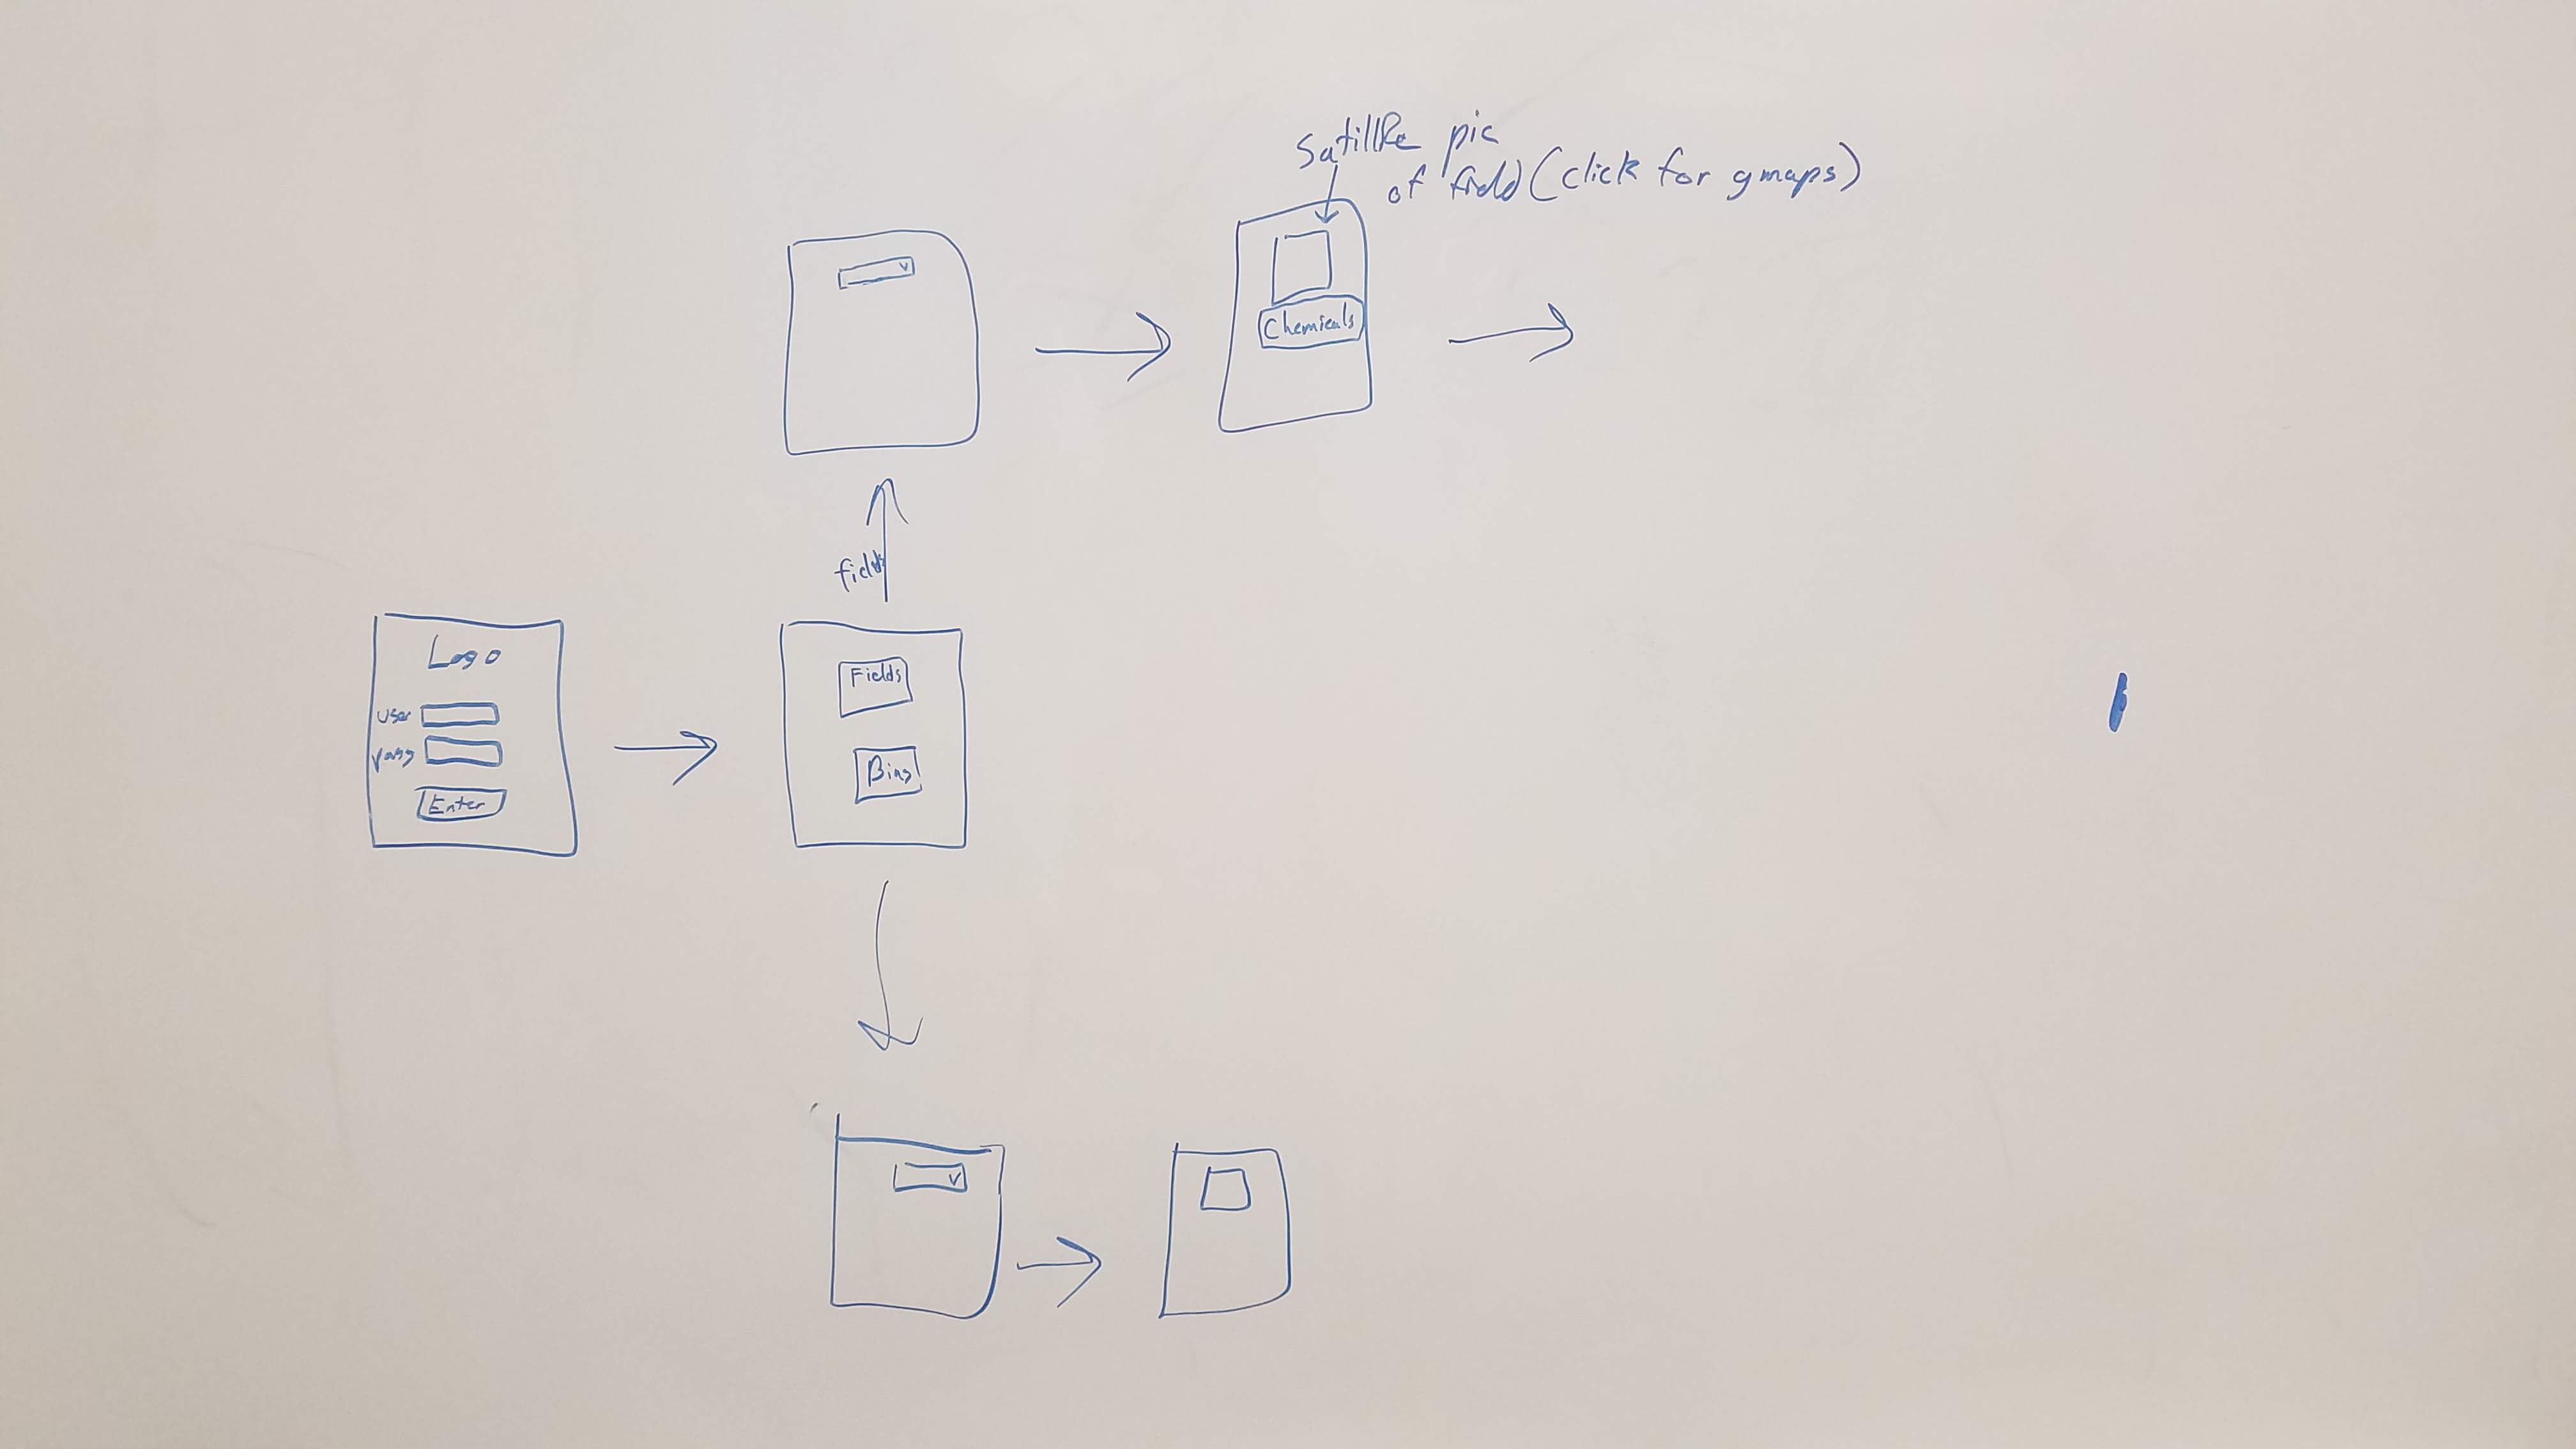 Satillite pic
of field (click for gmaps)
Chemicals
fields
Logo
user
pass
Enter
Fields
Bins